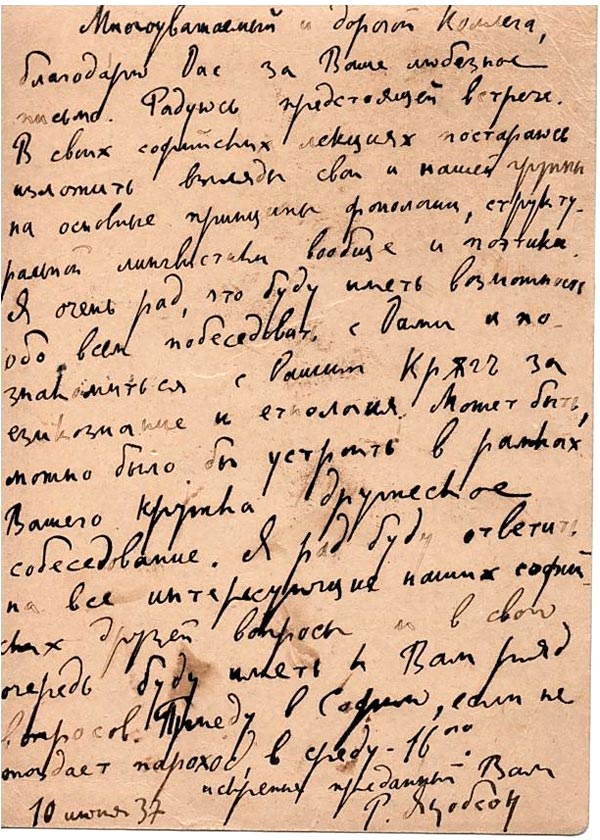 Многоуважаемый и дорогой Коллега,
благодарю Вас за Ваше любезное
письмо. Радуюсь предстоящей встрече.
В своих софийских лекциях постараюсь
изложить взгляды свои и нашей группы
на основные принципы фонологии, структу-
ральной лингвистики вообще и поэтики.
Я очень рад, что буду иметь возможность
обо всем побеседовать с Вами и по-
знакомиться с Вашим Крѫгъ за
езикознание и етнология. Может быть,
можно было бы устроить в рамках
Вашего кружка дружеское
собеседование. Я рад буду ответить
на все интересующие наших софий-
ских друзей вопросы и в свою
очередь буду иметь к Вам ряд
вопросов. Приеду в Софию, если не
опоздает пароход, в среду - 16 го.
искренне преданный Вам
10 июня 37 Р. Якобсон